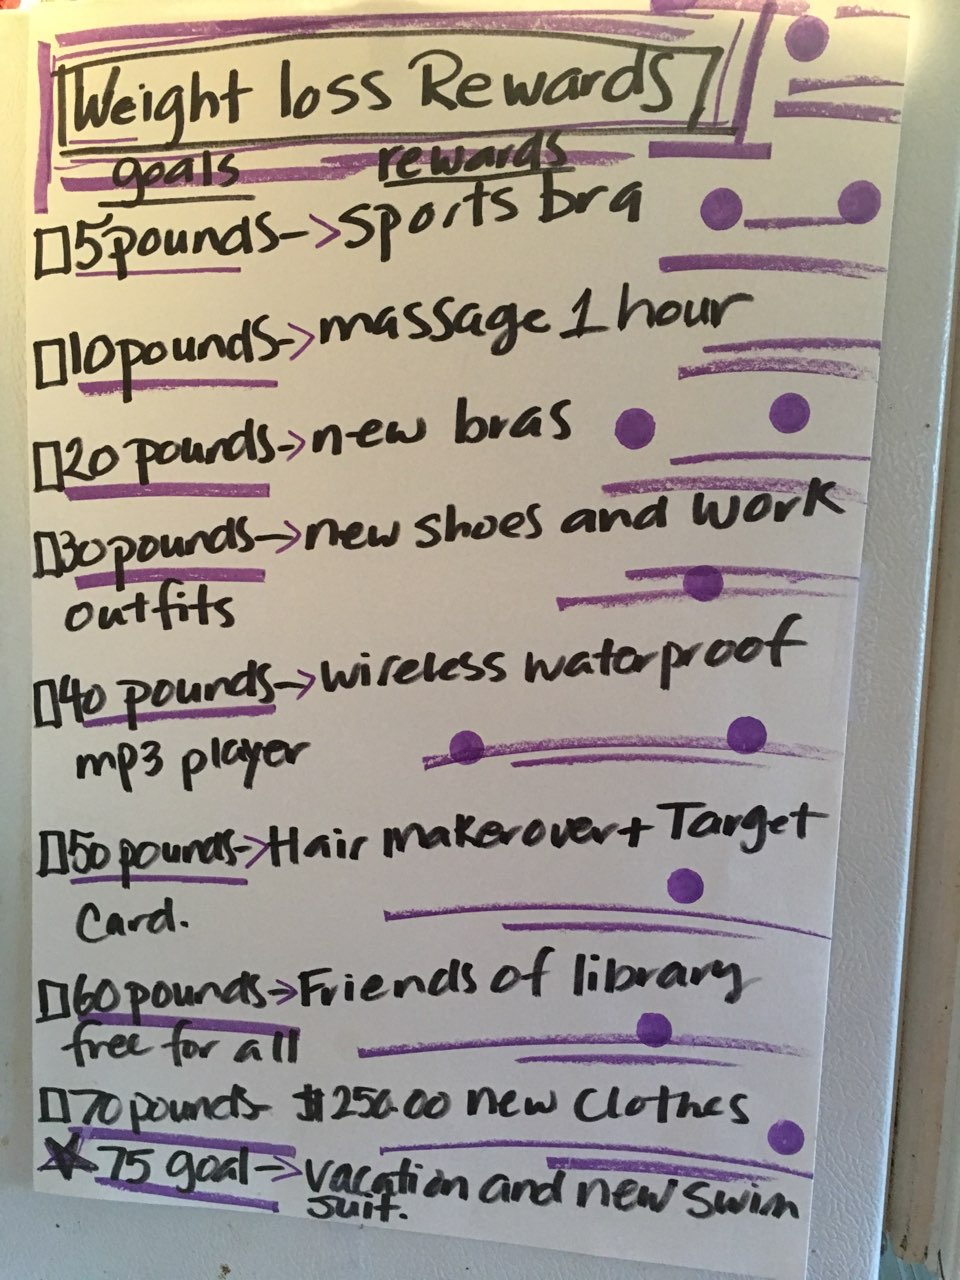 Weight loss Rewards
goals rewards
5 pounds -> sports bra
10 pounds -> massage 1 hour
20 pounds -> new bras
30 pounds -> new shoes and work
outfits
40 pounds -> wireless waterproof
mp3 player
50 pounds -> Hair makerover + Target
Card.
60 pounds -> Friends of library
free for all
70 pounds - $250.00 new clothes
75 goal -> vacation and new swim
suit.